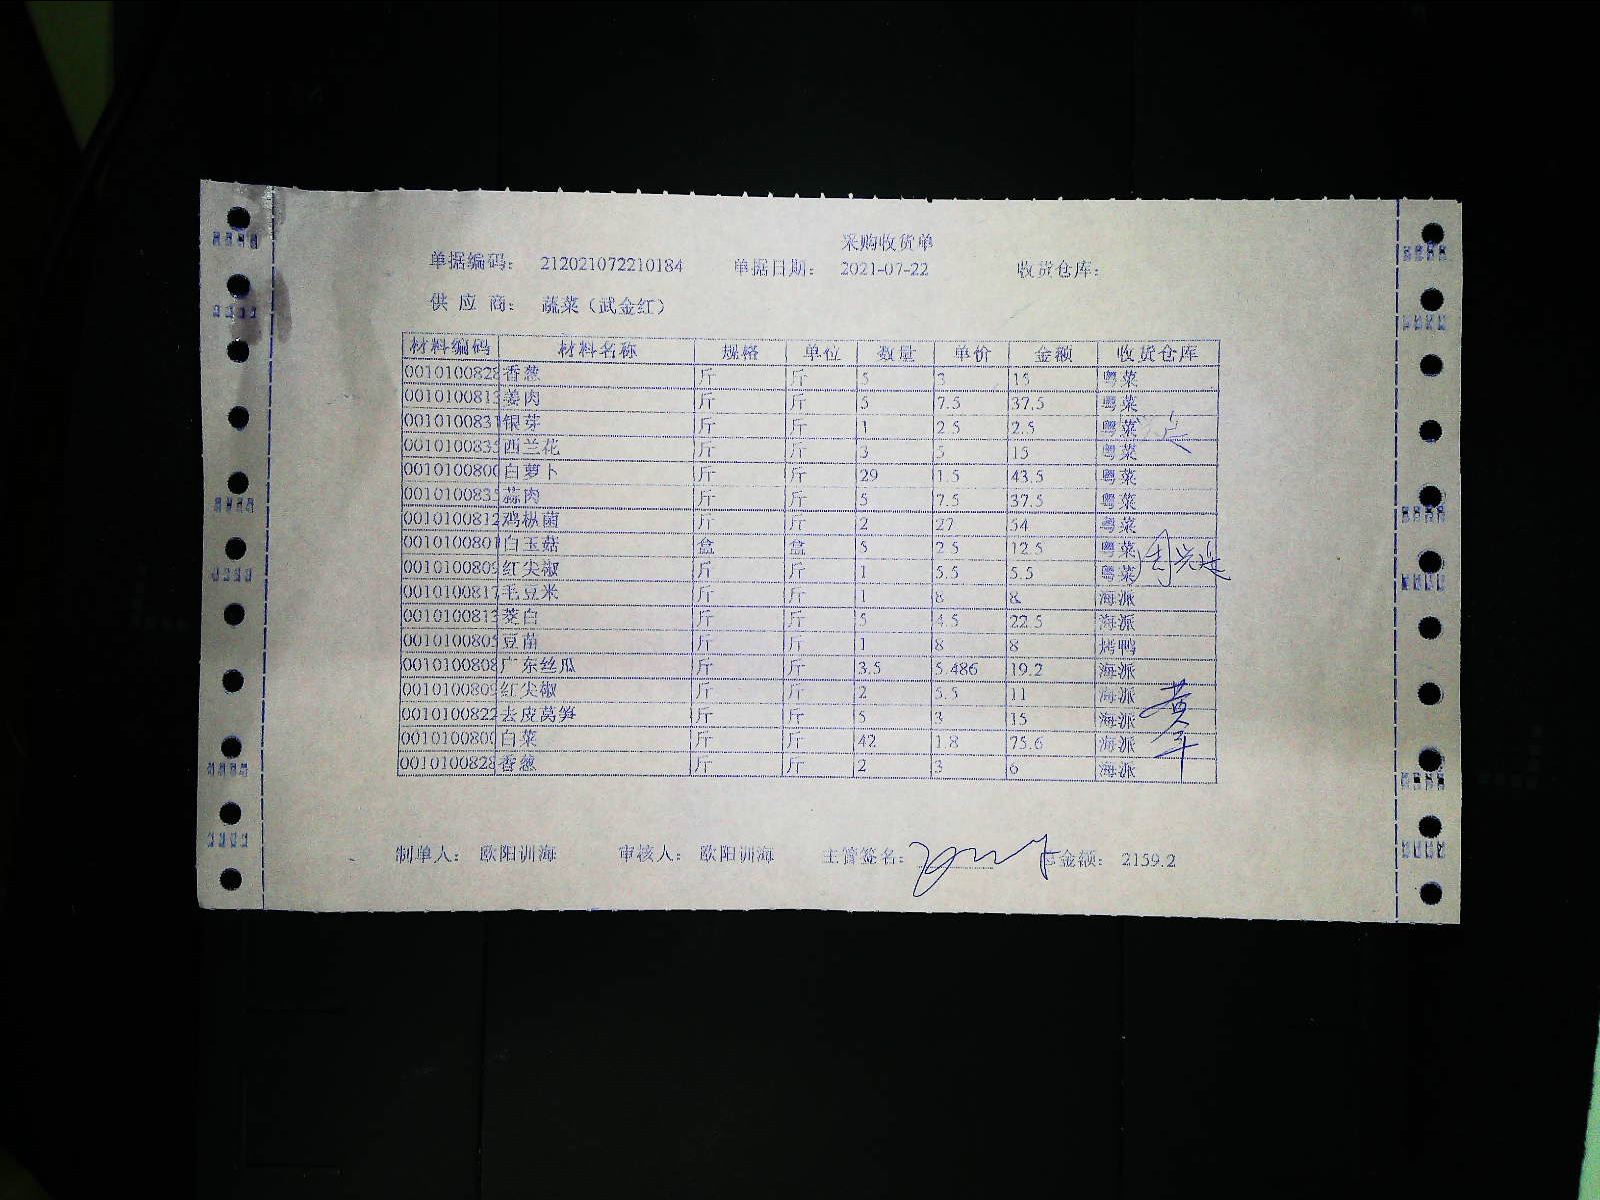 采购收货单
单据编码： 212021072210184 单据日期： 2021-07-22 收货仓库：
供 应 商： 蔬菜（武金红）
材料编码 材料名称 规格 单位 数量 单价 金额 收货仓库
0010100828 香葱 斤 斤 5 3 15 粤菜
0010100813 姜肉 斤 斤 5 7.5 37.5 粤菜
0010100831 银芽 斤 斤 1 2.5 2.5 粤菜
0010100835 西兰花 斤 斤 3 5 15 粤菜
0010100800 白萝卜 斤 斤 29 1.5 43.5 粤菜
0010100835 蒜肉 斤 斤 5 7.5 37.5 粤菜
0010100812 鸡枞菌 斤 斤 2 27 54 粤菜
0010100801 白玉菇 盒 盒 5 2.5 12.5 粤菜
0010100809 红尖椒 斤 斤 1 5.5 5.5 粤菜
0010100817 毛豆米 斤 斤 1 8 8 海派
0010100813 茭白 斤 斤 5 4.5 22.5 海派
0010100805 豆苗 斤 斤 1 8 8 烤鸭
0010100808 广东丝瓜 斤 斤 3.5 5.486 19.2 海派
0010100809 红尖椒 斤 斤 2 5.5 11 海派
0010100822 去皮莴笋 斤 斤 5 3 15 海派
0010100800 白菜 斤 斤 42 1.8 75.6 海派
0010100828 香葱 斤 斤 2 3 6 海派
制单人： 欧阳训海 审核人： 欧阳训海 主管签名： 总金额： 2159.2